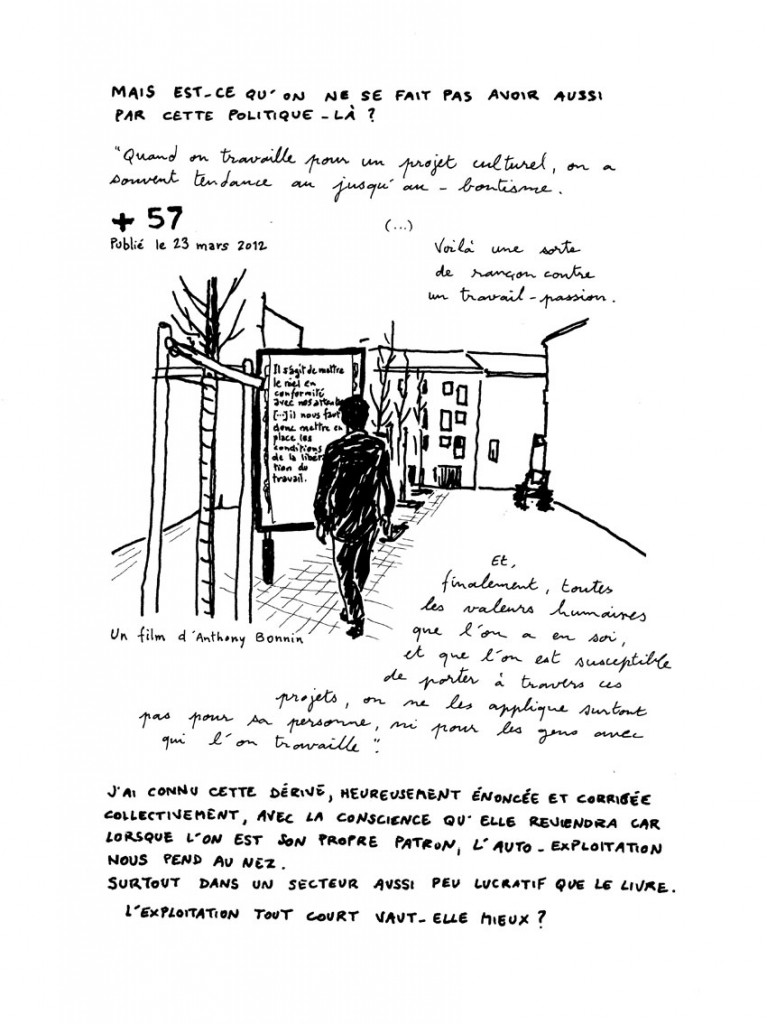 MAIS EST-CE QU'ON NE SE FAIT PAS AVOIR AUSSI
PAR CETTE POLITIQUE-LÀ ?
"Quand on travaille pour un projet culturel, on a
souvent tendance au jusqu'au-boutisme.
+ 57
Publié le 23 mars 2012
(...)
Voilà une sorte
de rançon contre
un travail-passion.
Il s'agit de mettre
le réel en
conformité
avec nos attentes
[...] il nous faut
donc mettre en
place les
conditions
de la libéra
tion du
travail.
Et,
finalement, toutes
les valeurs humaines
que l'on a en soi,
et que l'on est susceptible
de porter à travers ces
Un film d'Anthony Bonnin
projets, on ne les applique surtout
pas pour sa personne, ni pour les gens avec
qui l'on travaille".
J'AI CONNU CETTE DÉRIVE, HEUREUSEMENT ÉNONCÉE ET CORRIGÉE
COLLECTIVEMENT, AVEC LA CONSCIENCE QU'ELLE REVIENDRA CAR
LORSQUE L'ON EST SON PROPRE PATRON, L'AUTO-EXPLOITATION
NOUS PEND AU NEZ.
SURTOUT DANS UN SECTEUR AUSSI PEU LUCRATIF QUE LE LIVRE.
L'EXPLOITATION TOUT COURT VAUT-ELLE MIEUX ?